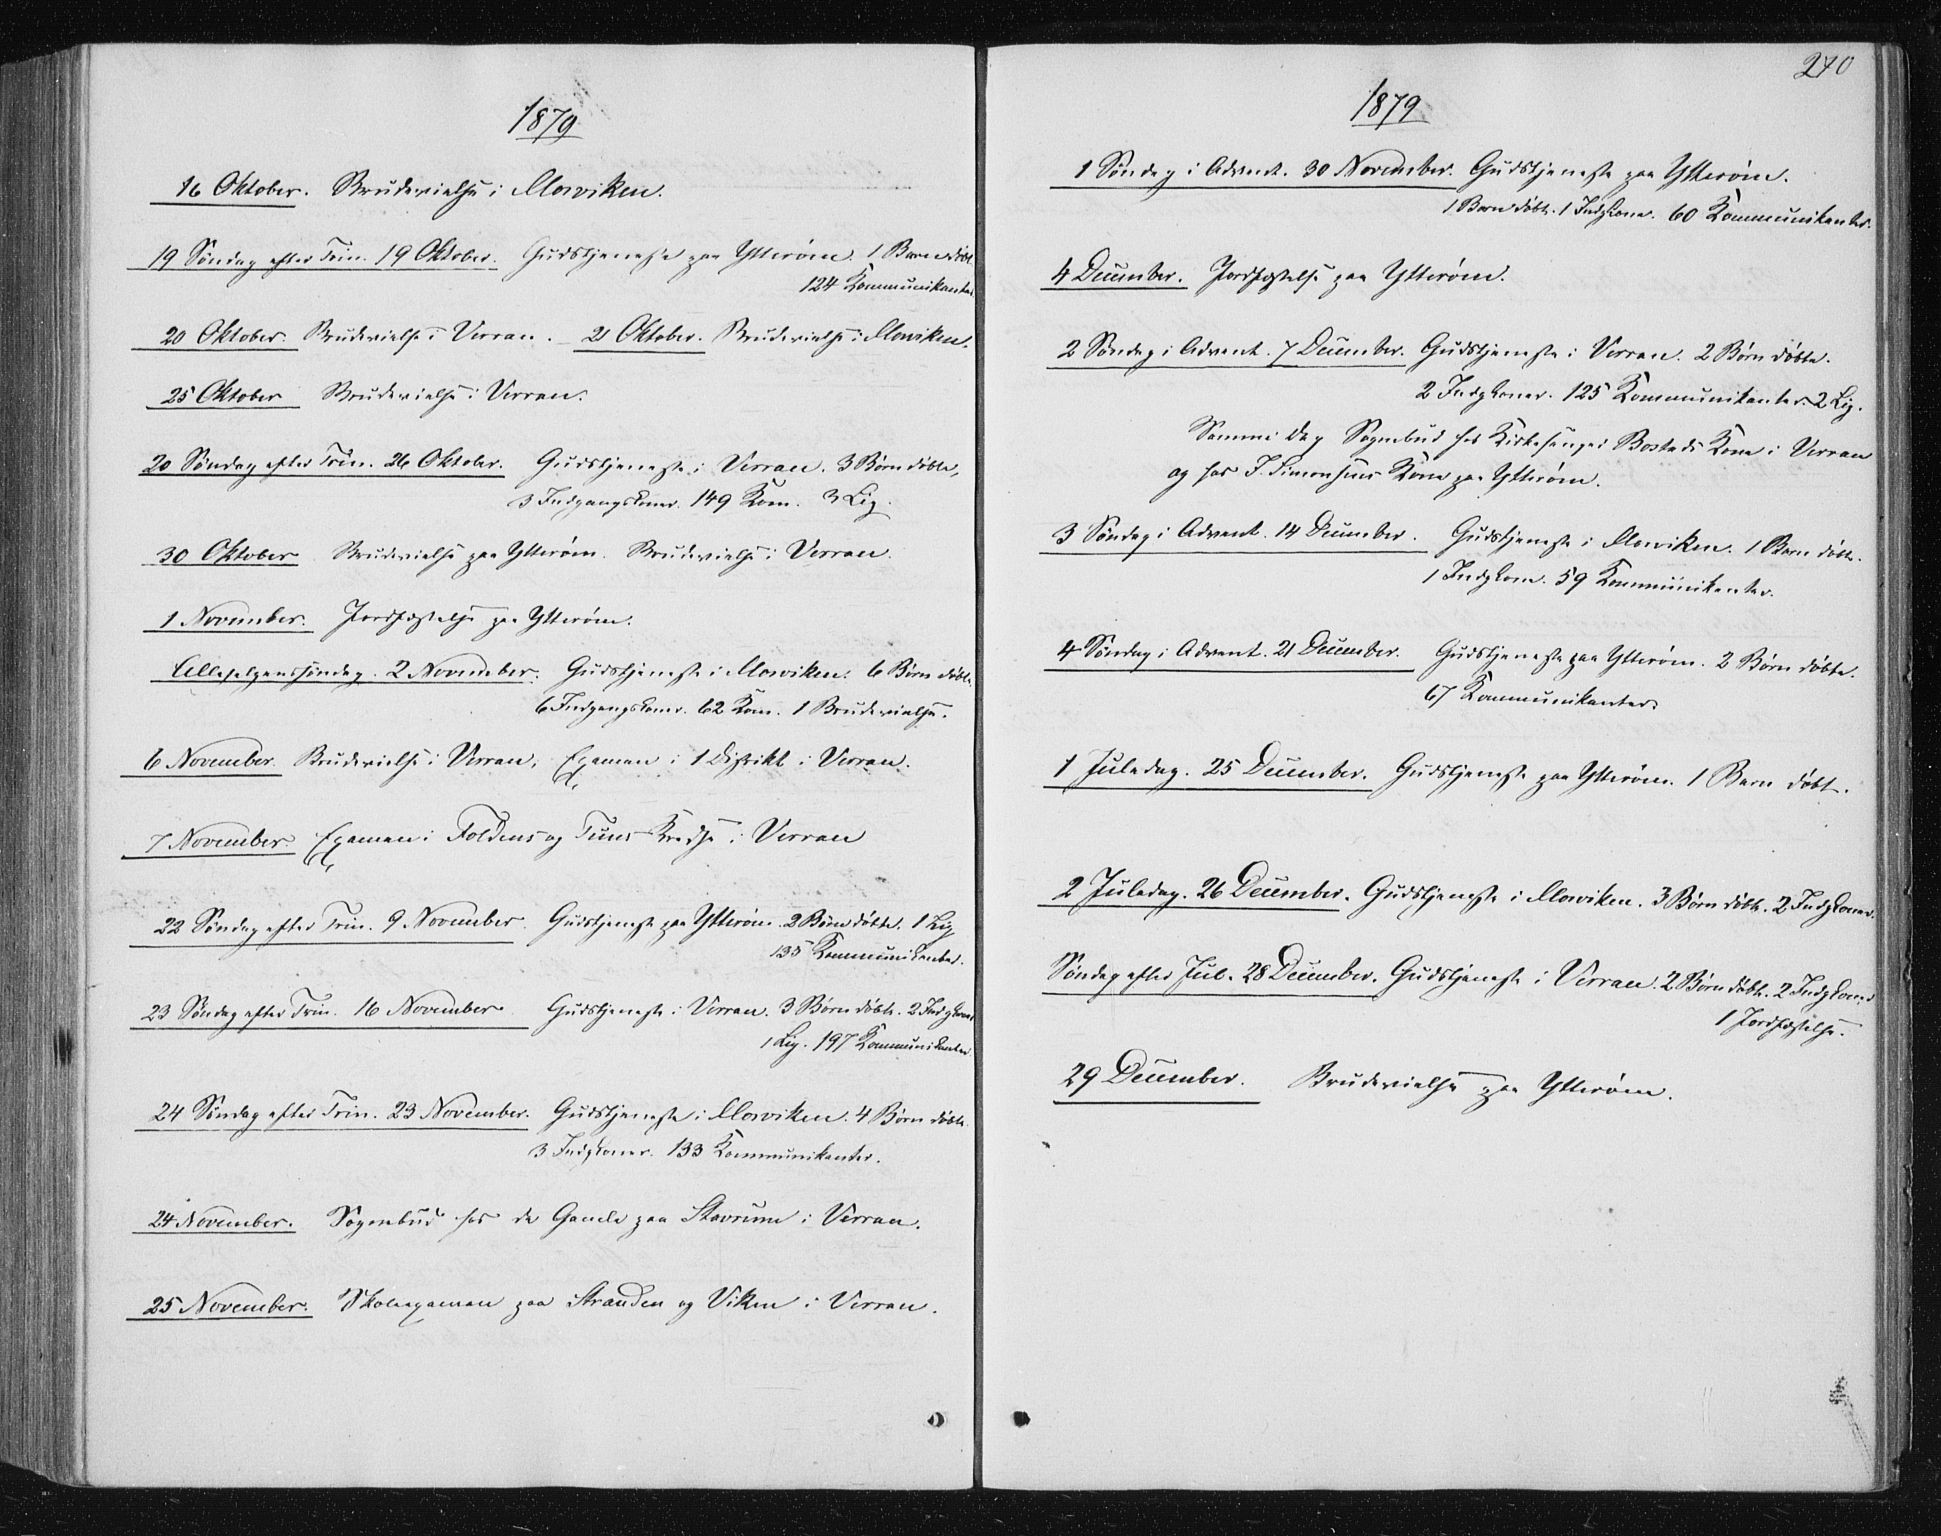 1879
16 Oktober. Brudevielse i Mosviken.
19 Søndag efter Trin. 19 Oktober. Gudstjeneste paa Ytterøen. 1 Barn døbt.
124 Kommunikanter
20 Oktober. Brudevielse i Verran. 21 Oktober. Brudevielse i Mosviken.
25 Oktober Brudevielse i Verran.
20 Søndag efter Trin. 26 Oktober. Gudstjeneste i Verran. 3 Børn døbte,
3 Indgangskoner. 149 Kom. 3 Lig.
30 Oktober Brudevielse paa Ytterøen. Brudevielse i Verran.
1 November. Jordfæstelse paa Ytterøen.
Allehelgenssøndag. 2 November. Gudstjeneste i Mosviken. 6 Børn døbte.
6 Indgangskoner. 62 Kom. 1 Brudevielse.
6 November. Brudevielse i Verran. Examen i 1 Distrikt i Verran.
7 November Examen i Foldens og Tuns Kredse i Verran
22 Søndag efter Trin. 9 November Gudstjeneste paa Ytterøen. 2 Børn døbte. 1 Lig
135 Kommunikanter.
23 Søndag efter Trin. 16 November Gudstjeneste i Verran. 3 Børn døbte. 2 Indgkoner
1 Lig. 197 Kommunikanter
24 Søndag efter Trin. 23 November. Gudstjeneste i Mosviken. 4 Børn døbte.
3 Indgkoner. 133 Kommunikanter.
24 November. Sognebud hos de Gamle paa Stavrum i Verran.
25 November. Skoleexamen paa Stranden og Viken i Verran.
270
1879
1 Søndag i Advent. 30 November. Gudstjeneste paa Ytterøen.
1 Barn døbt. 1 Indgkone. 60 Kommunikanter.
4 December. Jordfæstelse paa Ytterøen.
2 Søndag i Advent. 7 December. Gudstjeneste i Verran. 2 Børn døbte.
2 Indgkoner. 125 Kommunikanter. 2 Lig.
Samme Dag Sognebud hos Kirkesanger Bostads Kone i Verran
og hos J. Simonsens Kone paa Ytterøen.
3 Søndag i Advent. 14 December. Gudstjeneste i Mosviken. 1 Barn døbt.
1 Indgkone. 59 Kommunikanter.
4 Søndag i Advent. 21 December. Gudstjeneste paa Ytterøen. 2 Børn døbte.
67 Kommunikanter.
1 Juledag. 25 December. Gudstjeneste paa Ytterøen. 1 Barn døbt.
2 Juledag. 26 December. Gudstjeneste i Mosviken. 3 Børn døbte. 2 Indgkoner.
Søndag efter Jul. 28 December. Gudstjeneste i Verran. 2 Børn døbte. 2 Indgkoner
1 Jordfæstelse.
29 December. Brudevielse paa Ytterøen.